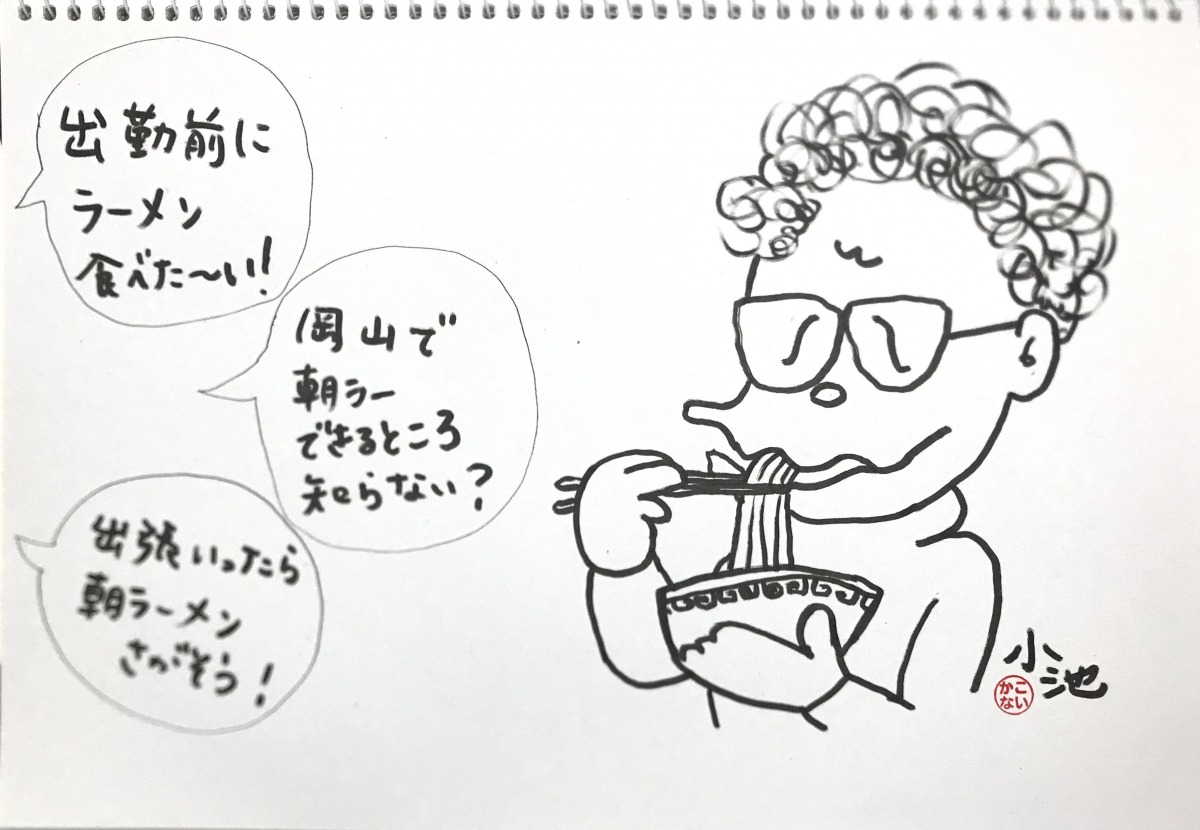 出勤前に
ラーメン
食べた〜い!
岡山で
朝ラー
できるところ
知らない?
出張いったら
朝ラーメン
さがそう!
小池
かこ
ない